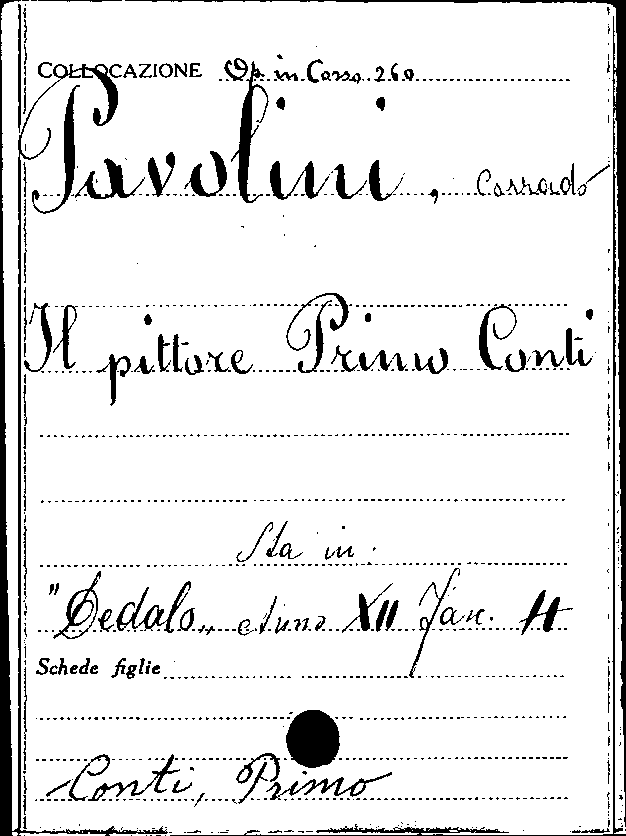 COLLOCAZIONE Op. in Corso 260
Pavolini, Corrado
Il pittore Primo Conti
Sta in:
"Dedalo„ Anno XII Fasc.
Schede figlie
Conti, Primo